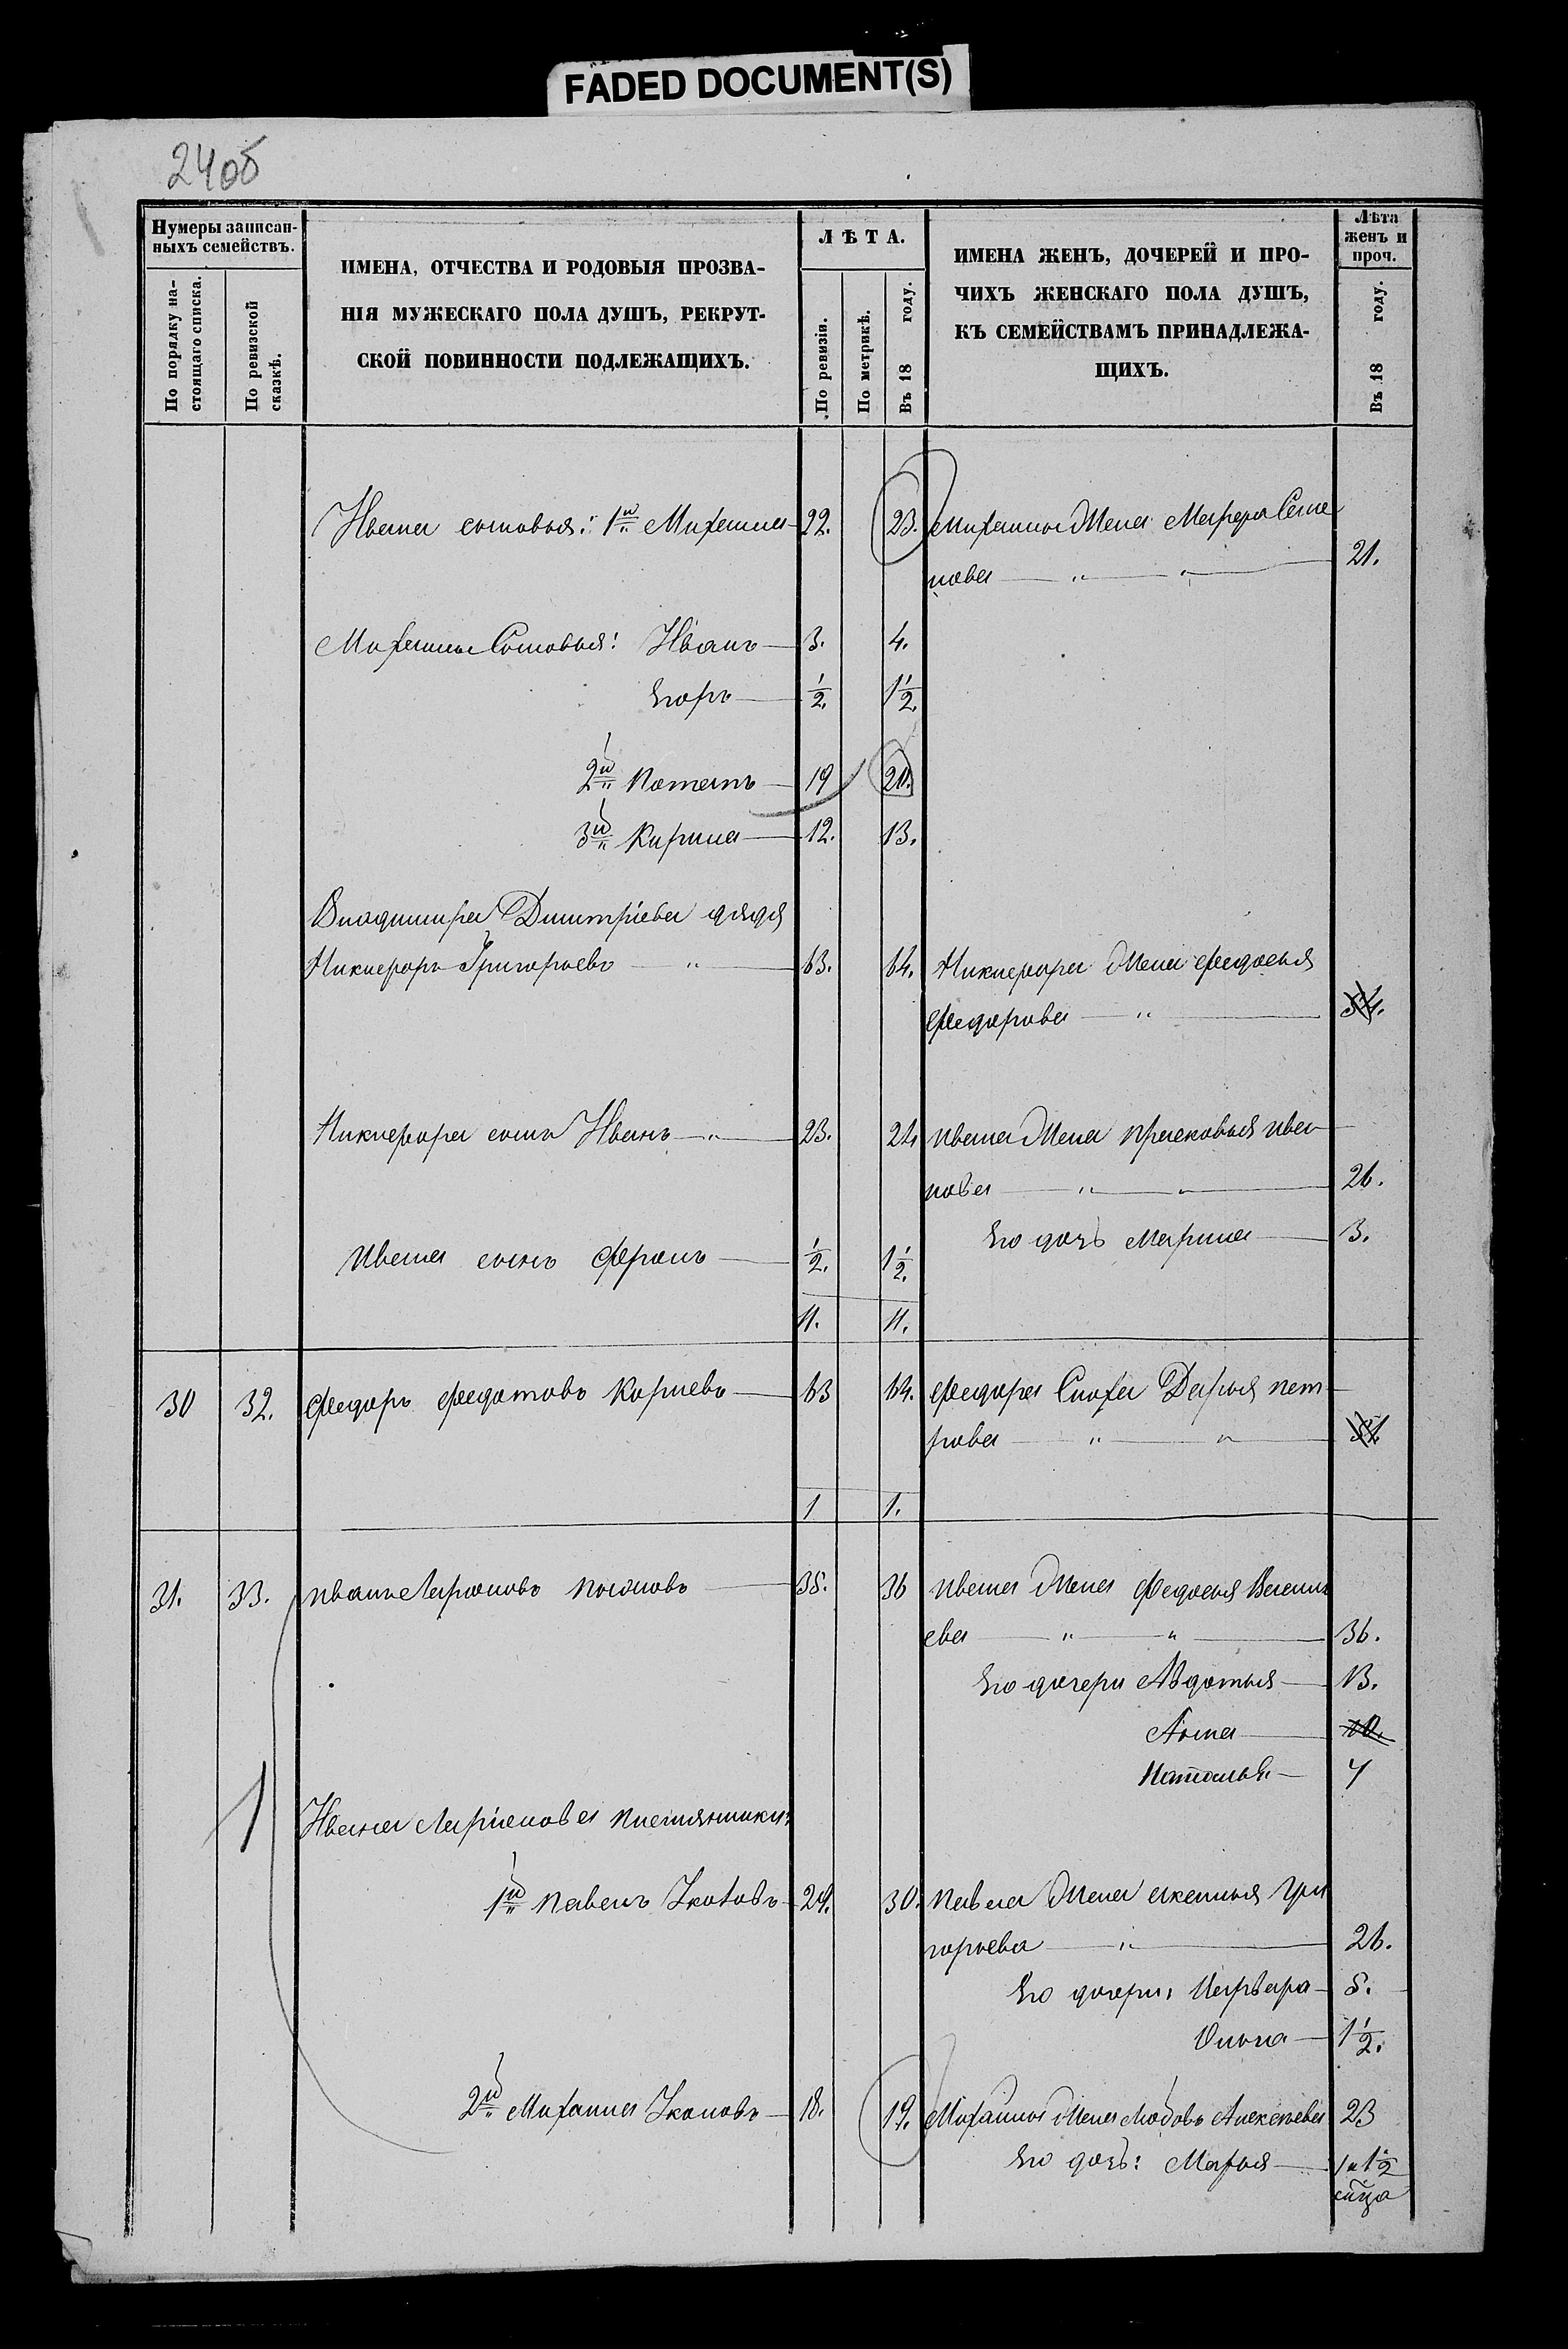 FADED DOCUMENT(S)
24об
Нумеры записан-
ныхъ семействъ.
По порядку на-
стоящаго списка.
По ревизской
сказкѣ.
ИМЕНА, ОТЧЕСТВА И РОДОВЫЯ ПРОЗВА-
НІЯ МУЖЕСКАГО ПОЛА ДУШЪ, РЕКРУТ-
СКОЙ ПОВИННОСТИ ПОДЛЕЖАЩИХЪ.
ЛѢТА.
По ревизіи.
По метрикѣ.
Въ 18 году.
ИМЕНА ЖЕНЪ, ДОЧЕРЕЙ И ПРО-
ЧИХЪ ЖЕНСКАГО ПОЛА ДУШЪ,
КЪ СЕМЕЙСТВАМЪ ПРИНАДЛЕЖА-
ЩИХЪ.
Лѣта
женъ и
проч.
Въ 18 году.
Ивана сыновья: 1й Михаила 22. 23. Михаилы жена Марфа Семе
нова " " 21.
Михаилы Сыновья: Иванъ 3. 4.
Егоръ 1/2. 1 1/2.
2й Потапъ 19 20.
3й Кирила 12. 13.
Владимира Димитріева дядя
Никифоръ Григорьевъ " 63. 64. Никифора жена Федосья
Федорова " 54.
Никифора сынъ Иванъ " 23. 24 Ивана жена Прасковья Ива
нова " " 26.
Его дочь Марина 3.
Ивана сынъ Фролъ 1/2. 1 1/2.
11. 11.
30 32. Федоръ Федотовъ Корневъ 63 64. Федора Сноха Дарья пет
рова " "
1 1.
31. 33. Иванъ Ларионовъ 35. 36 Ивана жена Федосья Васил
ева " " 36.
Его дочери Авдотья 13.
Анна 10.
Наталья 4
Ивана Ларіонова племянники:
1й Павелъ 29. 30. Павла жена Аксинья Гри
горьева " 26.
Его дочери: Варвара 5.
Ольга 1 1/2.
2й Михаила 18. 19. Михаилы жена Любовь Алексеева 23
Его дочь: Марья 1 1/2